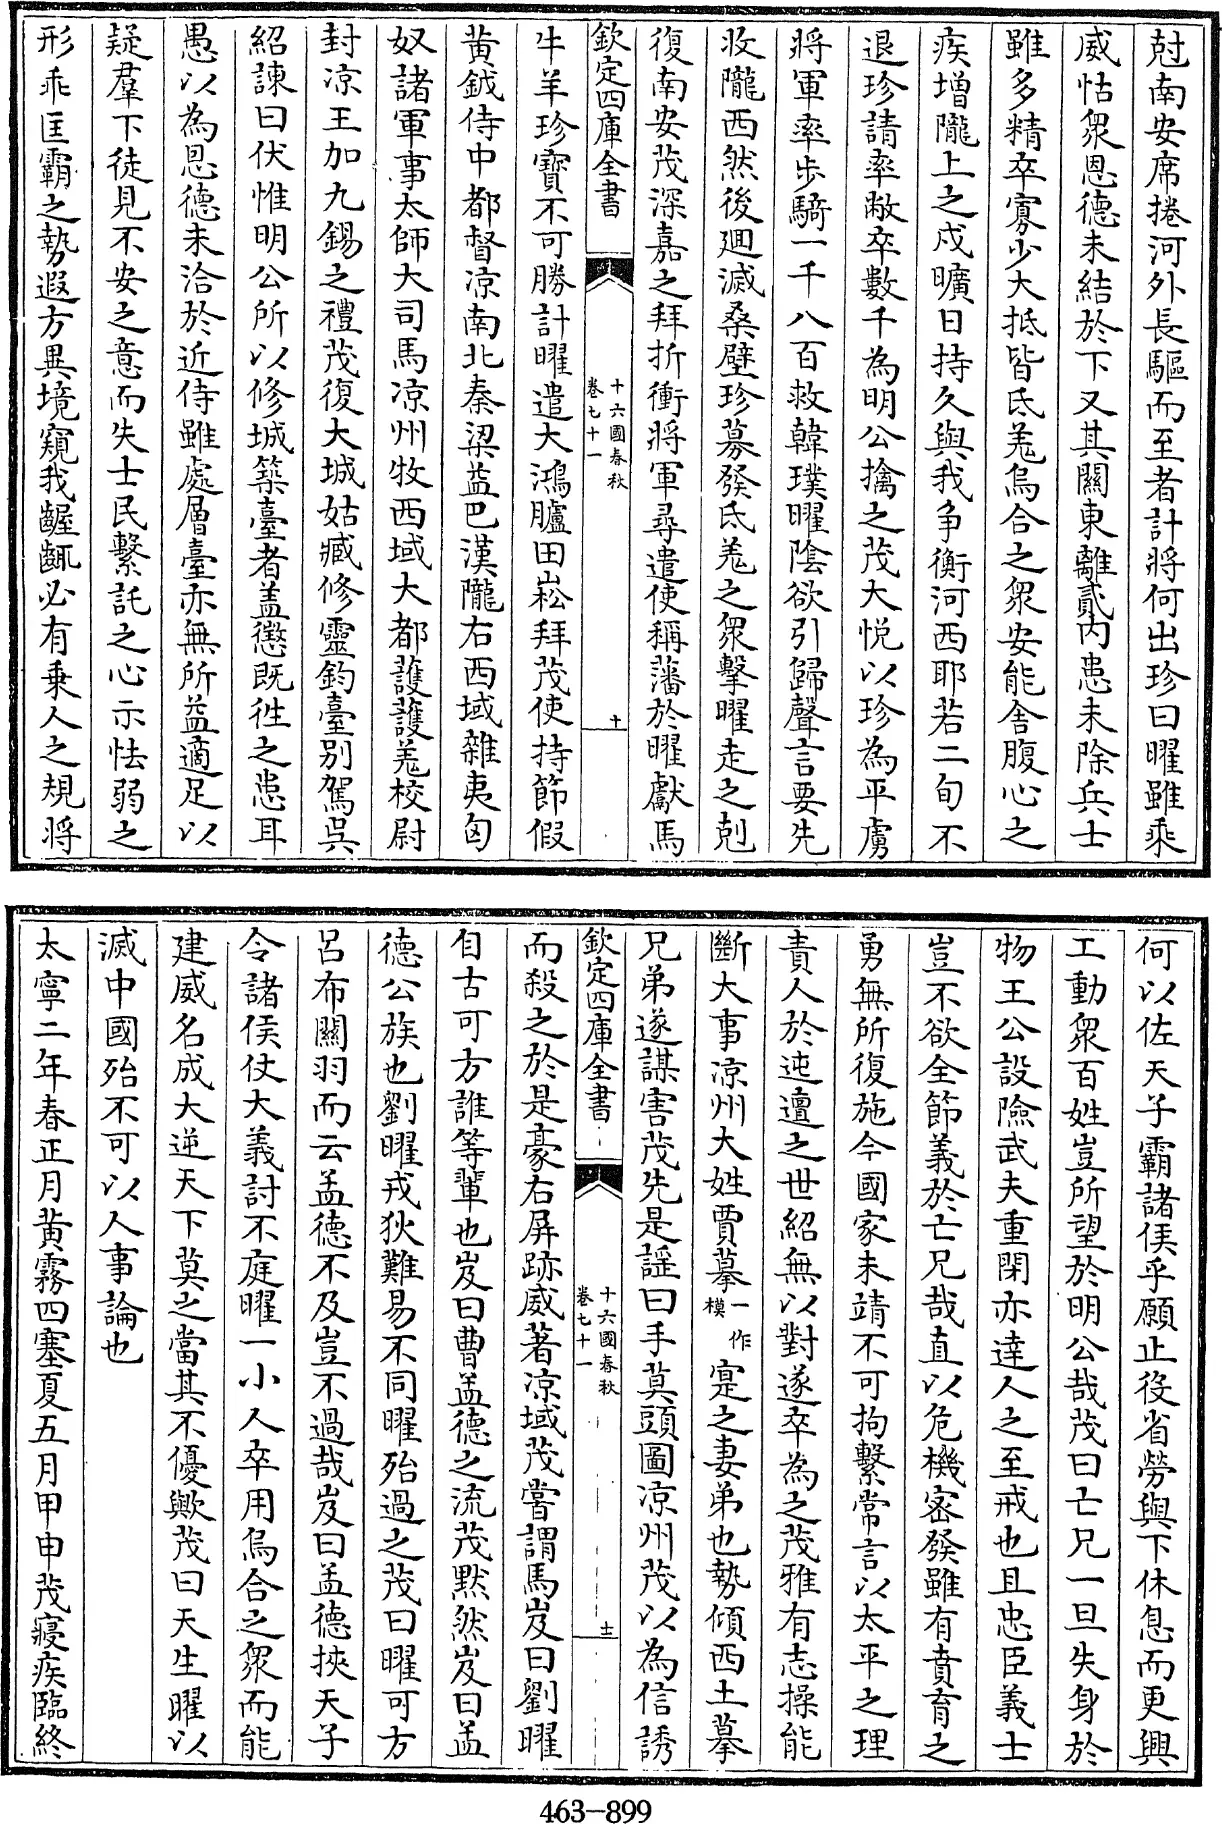 尅南安席捲河外長驅而至者計將何出珍曰曜雖乘
威怙衆恩德未結於下又其關東離貳内患未除兵士
雖多精卒寡少大抵皆氐羌烏合之衆安能舍腹心之
疾增隴上之戍曠日持久與我争衡河西耶若二旬不
退珍請率敝卒數千為明公擒之茂大悦以珍為平虜
將軍率歩騎一千八百救韓璞曜陰欲引歸聲言要先
收隴西然後廻滅桑壁珍募發氐羌之衆擊曜走之剋
復南安茂深嘉之拜折衝將軍尋遣使稱藩於曜獻馬
欽定四庫全書
十六國春秋
卷七十一
十
牛羊珍寳不可勝計曜遣大鴻臚田崧拜茂使持節假
黄鉞侍中都督凉南北秦梁益巴漢隴右西域雜夷匈
奴諸軍事太師大司馬凉州牧西域大都護護羌校尉
封凉王加九錫之禮茂復大城姑臧修靈鈞臺别駕吳
紹諫曰伏惟明公所以修城築臺者盖懲既徃之患耳
愚以為恩德未洽於近侍雖處層臺亦無所益適足以
疑羣下徒見不安之意而失士民繫託之心示怯弱之
形乖匡霸之勢遐方異境窺我齷齪必有乗人之規將
何以佐天子霸諸侯乎願止役省勞與下休息而更興
工動衆百姓豈所望於明公哉茂曰亡兄一旦失身於
物王公設險武夫重閉亦達人之至戒也且忠臣義士
豈不欲全節義於亡兄哉直以危機宻發雖有賁育之
勇無所復施今國家未靖不可拘繫常言以太平之理
責人於迍邅之世紹無以對遂卒為之茂雅有志操能
斷大事凉州大姓賈摹一作模寔之妻弟也勢傾西土摹
兄弟遂謀害茂先是謡曰手莫頭圖凉州茂以為信誘
欽定四庫全書
十六國春秋
卷七十一
士
而殺之於是豪右屏跡威著凉域茂嘗謂馬岌曰劉曜
自古可方誰等輩也岌曰曹孟德之流茂黙然岌曰孟
德公族也劉曜戎狄難易不同曜殆過之茂曰曜可方
吕布關羽而云孟德不及豈不過哉岌曰孟德挾天子
令諸侯仗大義討不庭曜一小人卒用烏合之衆而能
建威名成大逆天下莫之當其不優歟茂曰天生曜以
滅中國殆不可以人事論也
太寧二年春正月黄霧四塞夏五月甲申茂寢疾臨終
463-899